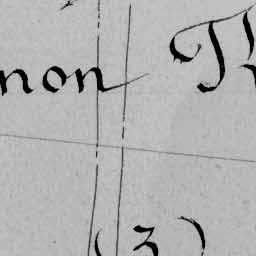 non Th
(3)